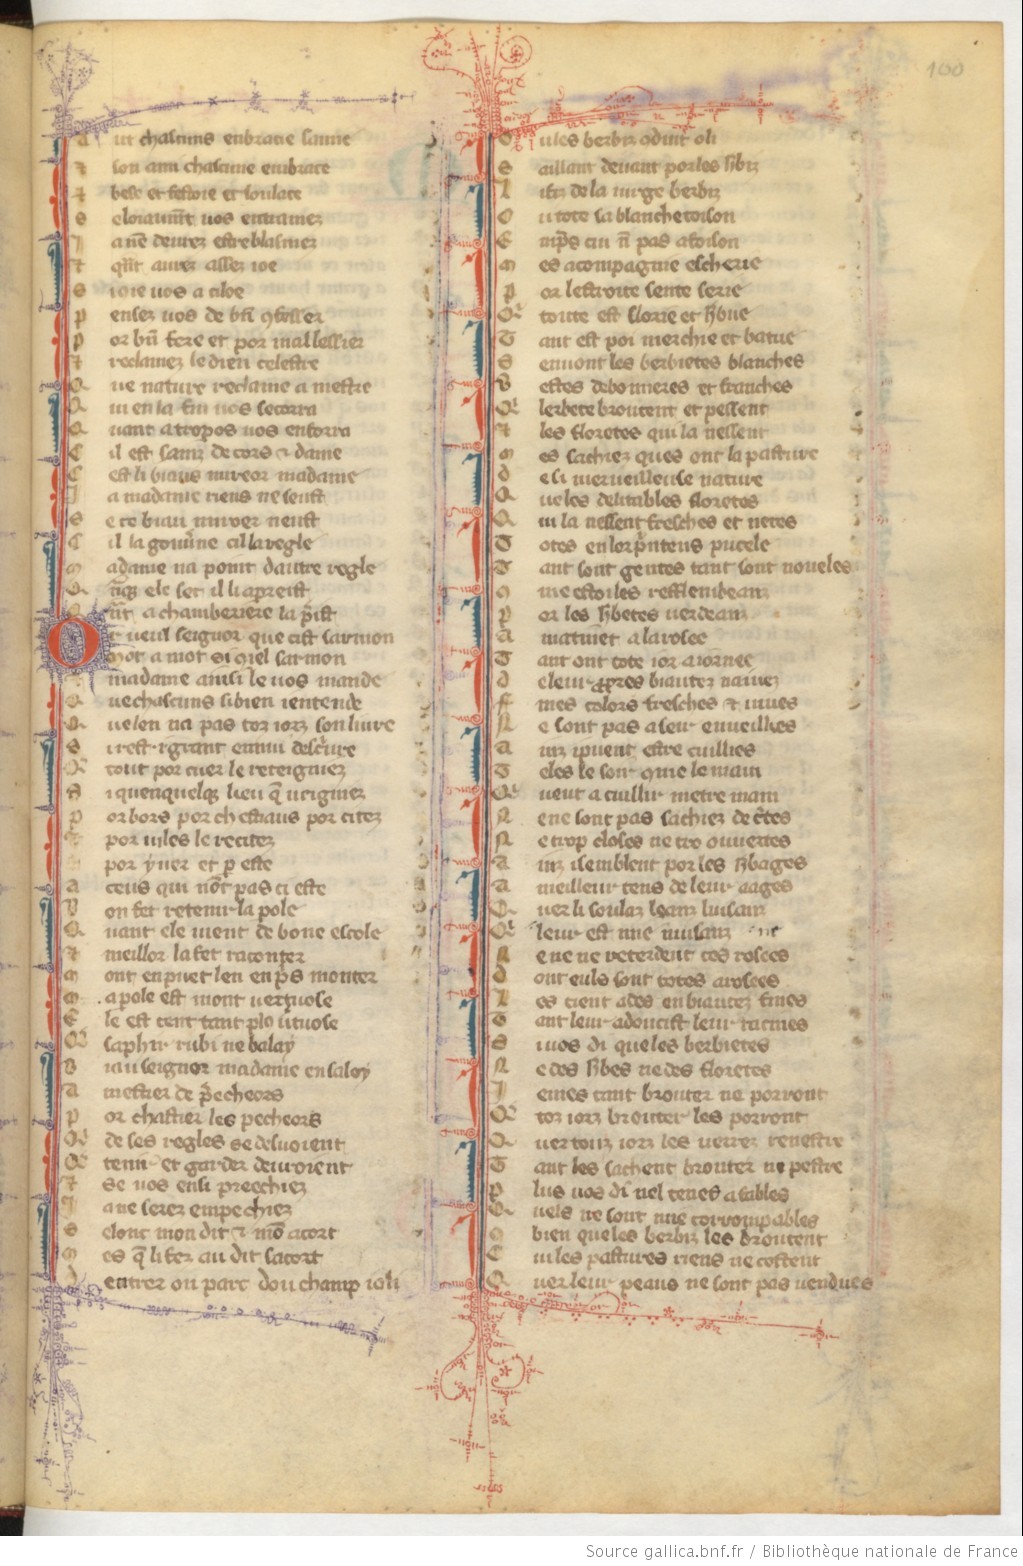 100
Q ut chascuns enbrace samie
⁊ son ami chascune embrace
⁊ bese et festoie et soulace
S e loiaum̅t vos entramez
J a n̅e deurez estre blasmez
⁊ q̅nt aurez assez ioe
S i oie uos a cloe
P ensez uos de b̅n 9fesser
P or b̅n fere et por mal lessier
⁊ reclamez le dieu celestre
Q ue nature reclame a mestre
Q ui en la fin uos secorra
Q uant atropos uos enforra
C il est saluz de cors ⁊ dame
C est li biaus mireor madame
J a madame riens ne seust
S e ce biau miroer neust
C il la gouu̅ne cil la regle
M adame na point dautre regle
Q̅nq̅ ele set il li apreist
Q̅nt a chamberiere la p̅ist
O r ueul seignor que cist sarmon
Mot a mot si q̅uel sarmon
madame ainsi le uos mande
Q ue chascuns si bien ientende
Q ue len na pas toz iorz son liure
S i rest trgrant ennui descriure
Q̅ tout por cuer le reteigniez
S i quenquelq̅ lieu q̅ uieigniez
P or bors por chestiaus por citez
⁊ por uiles le recitez
por yuer et p̅ este
A ceus qui no̅t pas ci este
B on fet retenir la pole
Q uant ele uient de bone escole
⁊ meillor la fet raconter
M ont en puet len en p̅s monter
M a pole est mout uertuose
E le est cent tant pl9 p̅tuose
Q̅ saphir rubi ne balay
B iau seignor madame en sa loy
A mestier de p̅echeors
P or chastier les pecheors
Q̅ de ses regles se desuoient
Q̅ tenir et garder deuroient
⁊ se uos ensi preechiez
J a ne serez empechiez
S elonc mon dit ⁊ mo̅ acort
M es q̅ li fez au dit sacort
D entrer ou parc dou champ ioli
O u les berbiz o dun̅t o li
S aillant deuant por les h̅biz
L i fiz de la uirge berbiz
O u tote sa blanche toison
E mp̅s cui n̅ pas a foison
M es a compagnie escherie
P or lestroite sente serie
Q̅ toute est florie et h̅bue
T ant est poi merchie et batue
S en uont les berbietes blanches
B estes debonneres et franches
Q̅ lerbete broutent et pessent
⁊ les floretes qui la nessent
M es sachiez ques ont la pasture
D e si merueilleuse nature
Q ue les delitables floretes
Q ui la nessent fresches et netes
T otes en lor p̅ntens pucele
T ant sont gentes tant sont noueles
9 me estoiles resflembeanz
P or les h̅betes uerdeanz
A matinet a la rosee
T ant ont tote ior aiornee
D e leur ꝓpres biautez naiuez
F ines colors fresches ⁊ uiues
N e sont pas a seur enueillies
A inz i puent estre cuillies
T eles le soir q̅uie le main
Q̅ ueut a cuillir metre main
N ene sont pas sachiez de c̅tes
N e trop closes ne tro ouuertes
A inz flemblent por les h̅bages
A meilleur tens de leur aages
Q uer li soulaz leanz luisanz
Q̅ leur est mie nuisanz
N e ne ne deterdent ces rosees
D ont euls sont totes arosees
L es tient ades en biautez fines
T ant leur adoucist leur racines
S i uos di que les berbietes
N e des h̅bes ne des floretes
J emes tant brouter ne porront
Q̅ toz iorz brouter les uorront
Q uer touz iorz les uerrez renestre
T ant les sachent brouter ne pestre
P lus uos di nel tenes a fables
Q uels ne sont mie corrompables
9 bien que les berbiz les broutent
C ui les pastures riens ne costent
Q uer leur peaus ne sont pas uendues
Source gallica.bnf.fr / Bibliothèque nationale de France